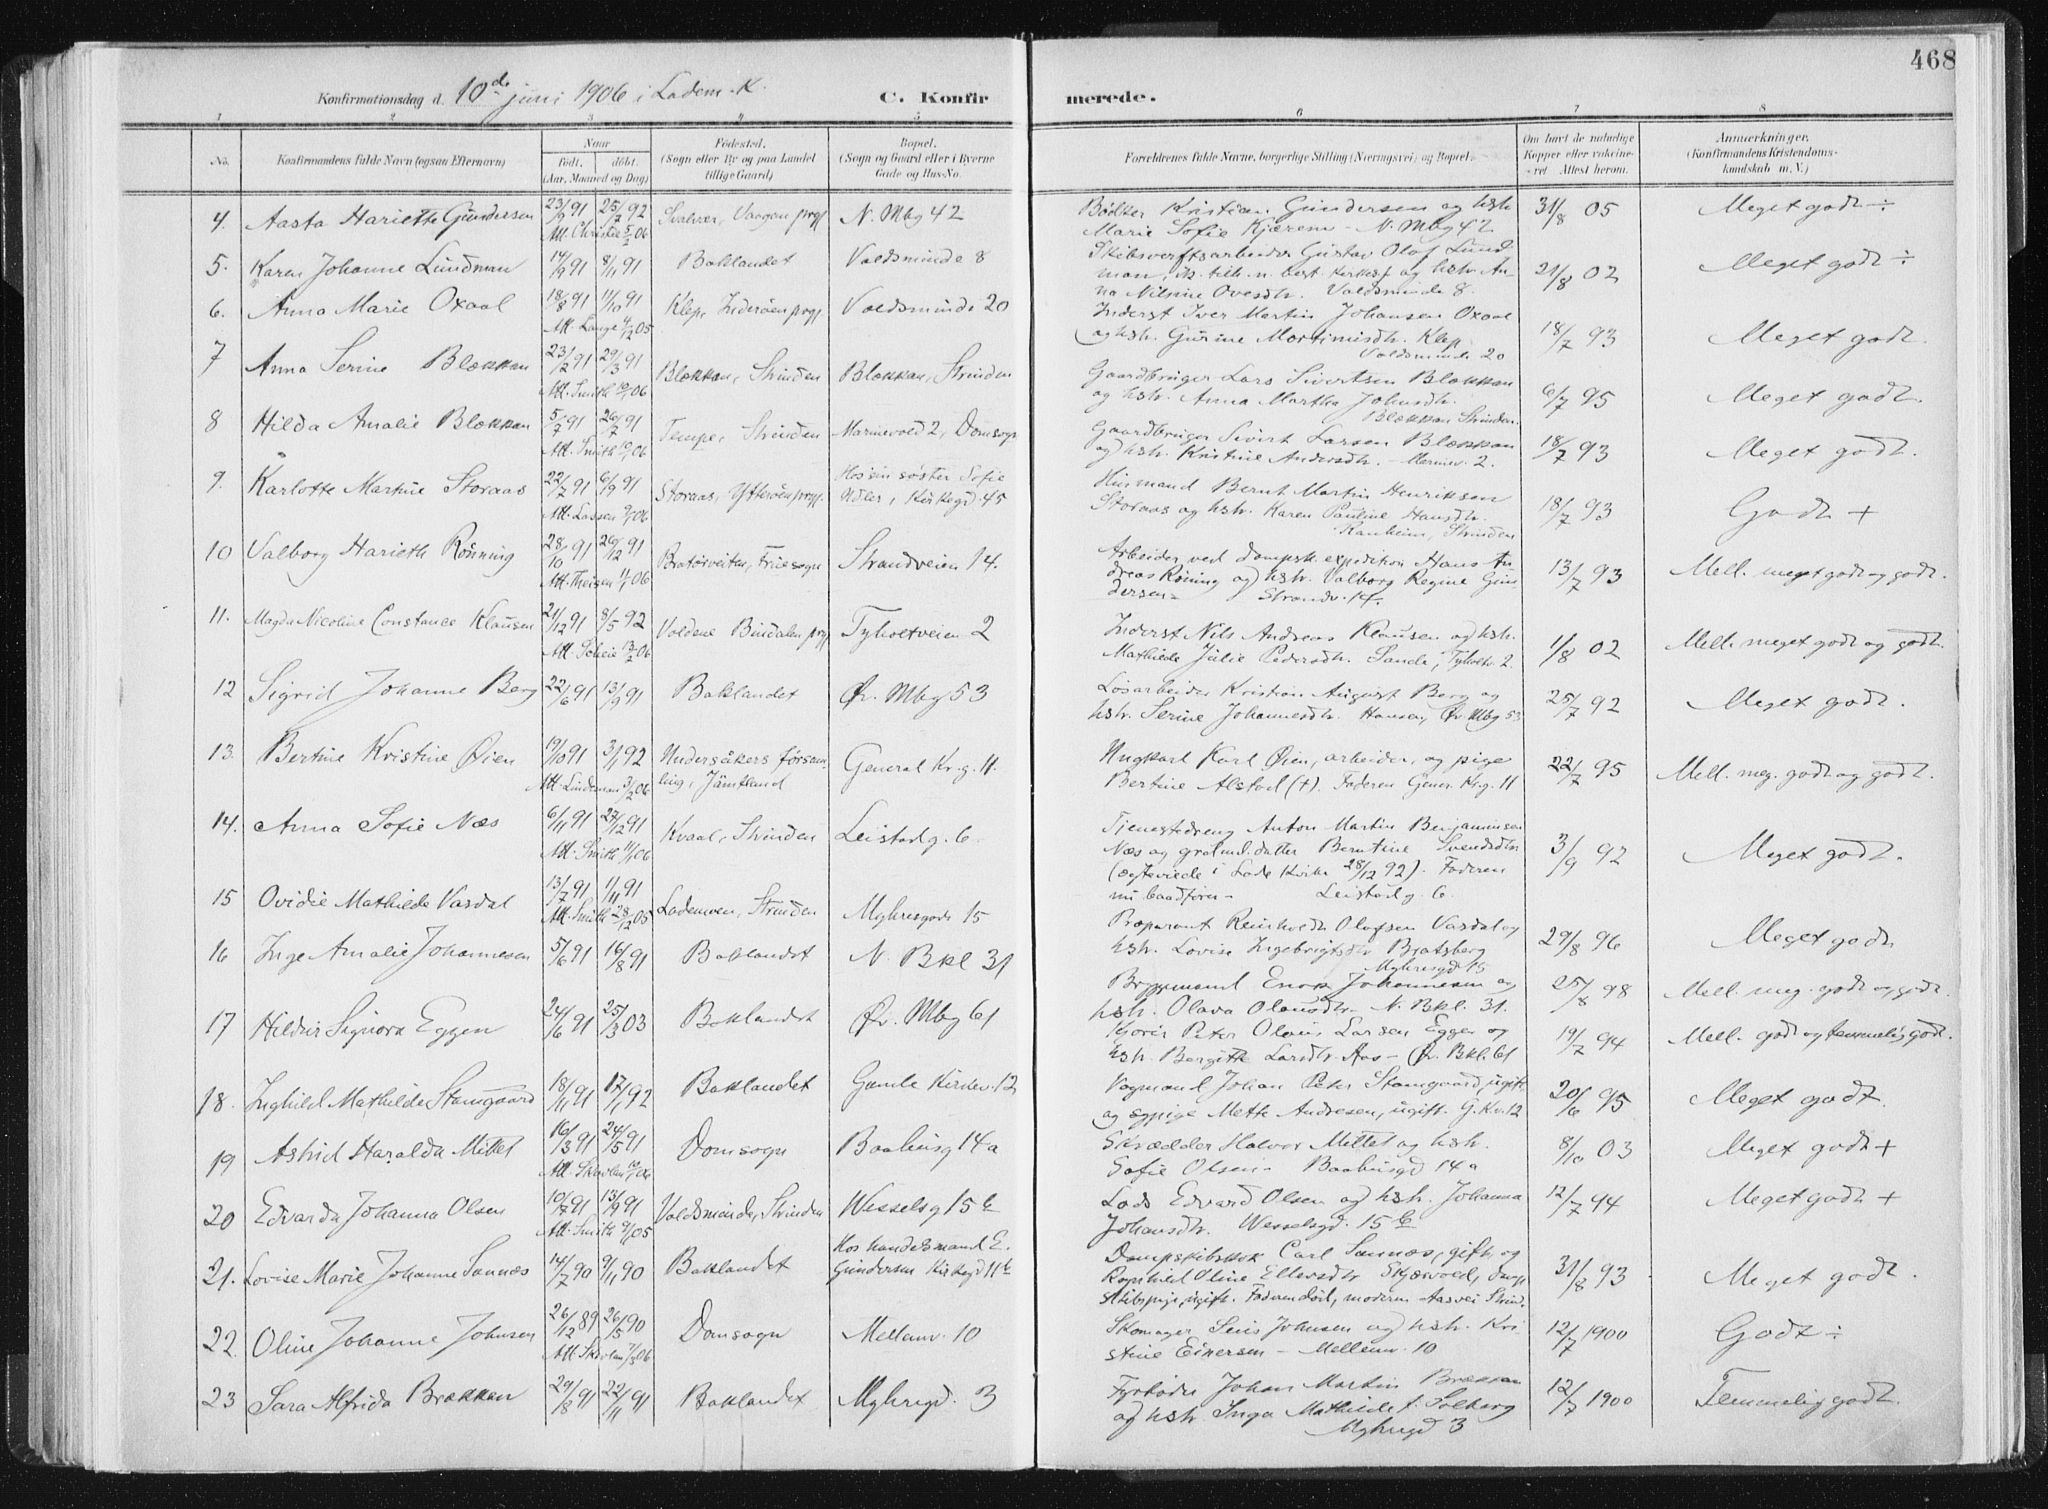 468
Konfirmationsdag d. 10de juni 1906 i Ladem. K. C. Konfirmerede.
1 2 3 4 5 6 7 8
No. Konfirmandens fulde Navn (ogsaa Efternavn) Naar født. døbt. (Aar, Maaned og Dag) Fødested. (Sogn eller By og paa Landet tillige Gaard) Bopæl. (Sogn og Gaard eller i Byerne Gade og Hus-No. Forældrenes fulde Navne, borgerlige Stilling (Næringsvei) og Bopæl. Om havt de naturlige Kopper eller vakcineret Attest herom. Anmærkninger. (Konfirmandens Kristendomskundskab m. V.)
4. Aasta Hariette Gundersen 23/9 91 25/7 92 Svolvær, Vaagan prgj N. Mbg 42 Bødker Kristian Gundersen og hstr. 31/8 05 Meget godt ÷
Att. Christie 5/2 06 Marie Sofie Kjærem - N. Mbg 42
5. Karen Johanne Lundman 14/9 91 8/11 91 Baklandet Voldsminde 8 Skibsverftsarbeider Gustav Olaf Lundman, og hstr. Anna Nilsine Ovesdtr. Voldsminde 8. 21/8 02 Meget godt ÷
6. Anna Marie Oxaal 18/8 91 11/10 91 Klep, Inderøen prgj Voldsminde 20 Inderst Iver Martin Johansen Oxaal
Att. Lange 4/12 05 og hstr. Gurine Mortinusdtr. Klep. Voldsminde 20 18/7 93 Meget godt.
7 Anna Serine Blekkan 23/2 91 29/3 91 Blekkan, Strinden Blekkan, Strinden Gaardbruger Lars Sivertsen Blekkan
Att. Smith 10/1 06 og hstr. Anna Martha Johnsdtr. Blekkan Strinden. 6/7 95 Meget godt.
8 Hilda Amalie Blekkan 5/7 91 26/7 91 Tempe, Strinden Marinevold 2, Domsogn Gaardbruger Sivert Larsen Blekkan
Att. Smith 10/1 06 og hstr. Kristine Andersdtr. - Marinev. 2. 18/7 93 Meget godt.
9. Karlotte Martine Storaas 22/7 91 6/9 91 Storaas, Ytterøen prgj. Hos sin søster Sofie Adler, Kirkegd. 45 Husmand Bernt Martin Henriksen
Att. Lassen 9/1 06 Storaas og hstr. Karen Pauline Hansdtr. Ranheim, Strinden 18/7 93 Godt +
10 Valborg Harieth Rønning 28/10 91 26/12 91 Bratørveiten, Fruesogn Strandveien 14. Arbeider ved dampsk. expedition Hans Andreas Røning og hstr. Valborg Regine Gundersen - Strandv. 14. 13/7 93 Mell. meget godt og godt.
Att. Theisen 11/1 06
11. Magda Nicoline Constance Klausen 21/12 91 8/5 92 Voldene Bindalen prgj Tyholtveien 2 Inderst Nils Andreas Klausen og hstr.
Att. Scheie 13/2 06 Mathilde Julie Pedersdtr. Sande, Tyholtv. 2 1/8 02 Mell. meget godt og godt.
12 Sigrid Johanne Berg 22/6 91 13/9 91 Baklandet Øv. Mbg 53 Løsarbeider Kristian August Berg og
hstr. Serine Johannesdtr. Hansen, Øv Mbg 53 25/7 92 Meget godt.
13. Bertine Kristine Øien 19/10 91 3/1 92 Undersåkers församling, Jämtland General Kr.g. 11. Ungkarl Karl Øien, arbeider, og pige
Att. Lindeman 3/2 06 Bertine Alstad (+). Faderen Gener. Kr.g. 11 22/7 95 Mell. meg. godt og godt.
14. Anna Sofie Næs 6/11 91 27/12 91 Kvaal, Strinden Leistadg. 6. Tjenestedreng Anton Martin Benjaminsen
Att. Smith 11/1 06 Næs og grdmd. datter Berntine Svendsdtr (ægteviede i Lade kirke 28/12 92). Faderen nu baadfører - Leistadg. 6. 3/9 92 Meget godt.
15 Ovidie Mathilde Vasdal 13/7 91 1/11 91 Lademoen, Strinden Myhresgade 15
Att. Smith 28/12 05 Præparant Reinholdt Olafsen Vasdal og hstr. Lovise Ingebrigtsdtr Bratsberg Myhresgd 15 29/8 96 Meget godt
16 Inga Amalie Johannesen 5/6 91 16/8 91 Baklandet N. Bkl 31 Bryggemand Enok Johannesen og
hstr. Olava Olausdtr. N. Bkl. 31. 25/8 98 Mell. meg. godt og godt.
17 Hildur Signora Eggen 24/6 91 25/3 03 Baklandet Øv. Mbg 61 Kjører Peter Olaus Larsen Eggen og
hstr. Bergitte Larsdtr. Aas - Øv. Bkl. 61 19/7 94 Mell. godt og temmelig godt.
18. Inghild Mathilde Stamgaard 18/11 91 17/1 92 Baklandet Gamle Kirkev. 12 Vognmand Johan Peter Stamgaard, ugift
og sypige Mette Andresen, ugift. G. Kv. 12 20/6 95 Meget godt.
19 Astrid Haralda Mittet 16/3 91 24/5 91 Domsogn Baahusg 14a Skrædder Halvor Mittet og hstr.
Att. Skavlan 10/1 06 Sofie Olsen - Baahusgd 14a 8/10 03 Meget godt +
20 Edvarda Johanna Olsen 10/7 91 13/9 91 Voldsminde, Strinden Wesselsg 15b Lods Edvard Olsen og hstr. Johanna
Att. Smith 9/1 05 Johansdtr. Wesselsgd. 15b 12/7 94 Meget godt +
21. Lovise Marie Johanne Sannæs 14/7 90 9/11 90 Baklandet Hos handelsmand E. Gundersen Kirkegd 11b Dampskibskok Carl Sannæs, gift, og
Ragnhild Oline Ellevsdtr Skjævold, dampskibspige, ugift. Faderen død, moderen Aasvei Strind. 31/8 93 Meget godt.
22. Oline Johanne Johnsen 26/12 89 26/5 90 Domsogn Mellemv. 10 Skomager Senius Johnsen og hstr. Kristine Einersen - Mellemv. 10 12/7 1900 Godt ÷
Att. Skavlan 7/3 06
23 Sara Alfrida Brækken 29/8 91 22/11 91 Baklandet Myhregd. 3 Fyrbøder Johan Martin Brækkan
og hstr. Inga Mathilde f. Solberg Myhregd 3 12/7 1900 Temmelig godt.